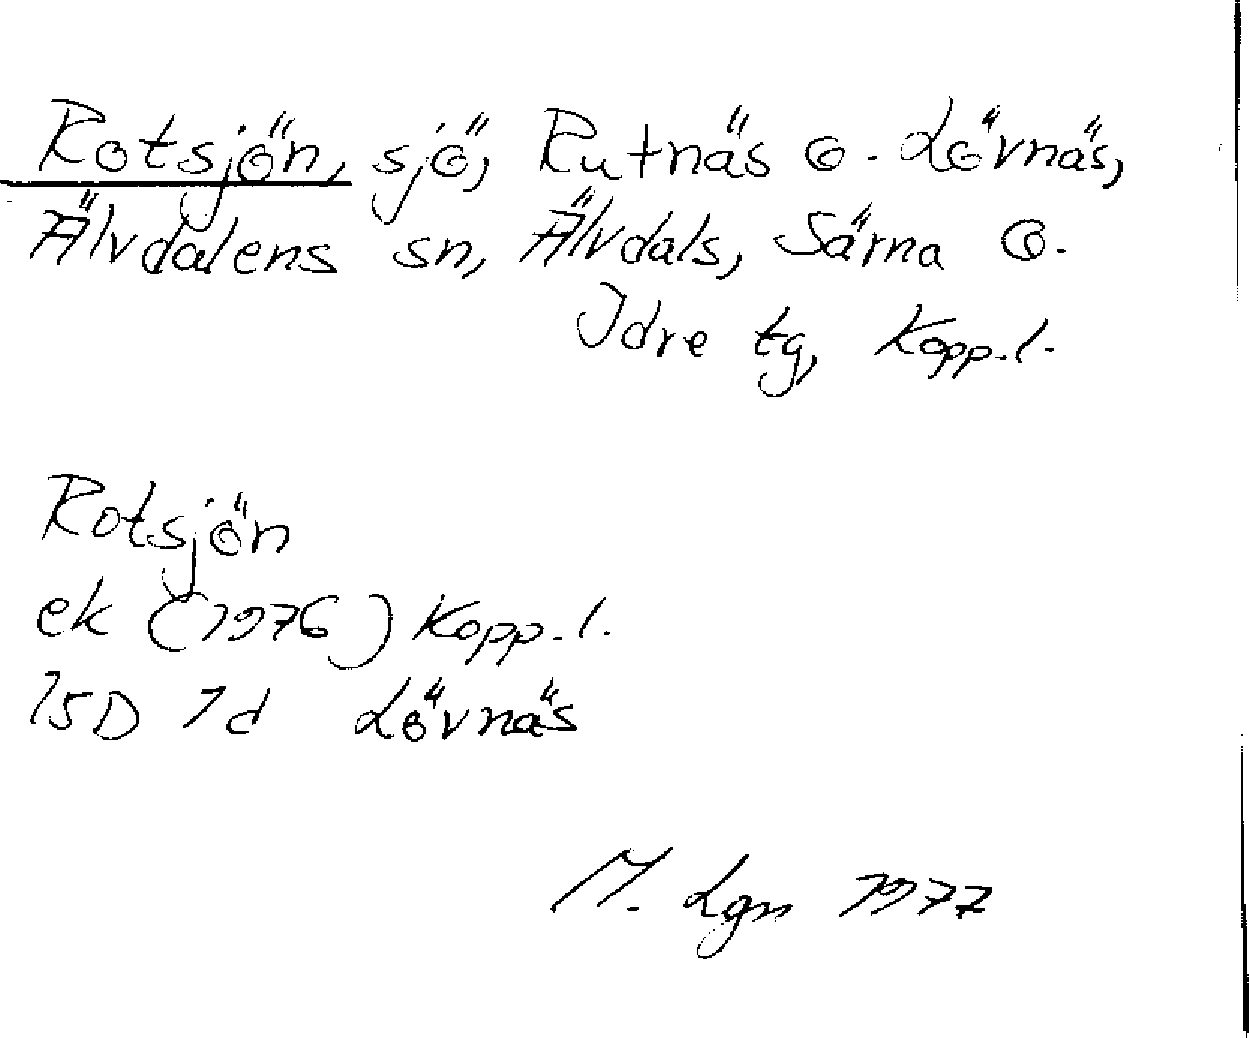 Rotsjön, sjö, Rutnäs o. Lövnäs,
Älvdalens sn, Älvdals, Särna o.
Idre tg, Kopp. l.
Rotsjön
ek (1976) Kopp. l.
15D 1d Lövnäs
M. Lgn 1977